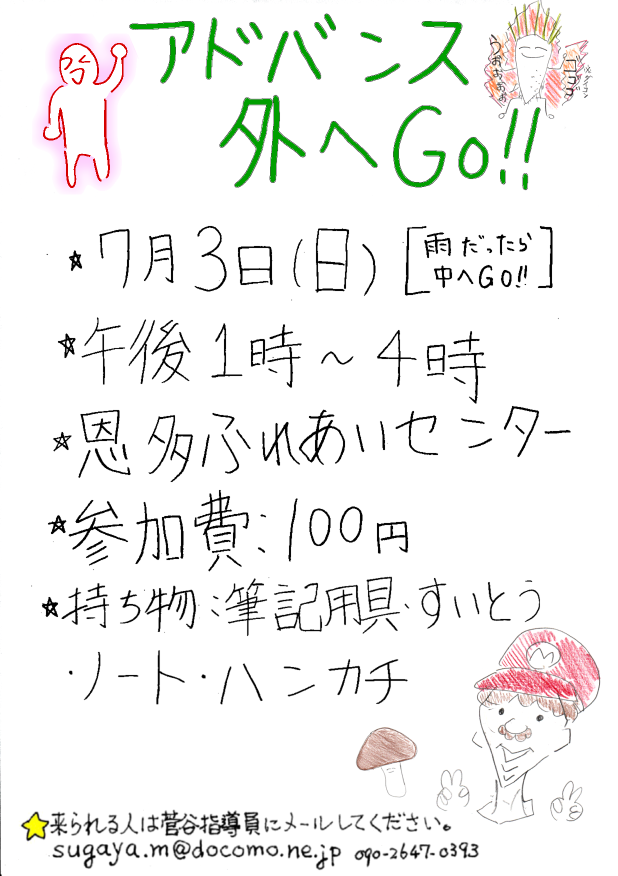 アドバンス
外へGo!!
うおぉぉぉ
ゴゴゴ
☆7月3日(日)
[雨だったら
中へGO!!]
☆午後1時~4時
☆恩多ふれあいセンター
☆参加費:100円
☆持ち物:筆記用具・すいとう
・ノート・ハンカチ
M
☆来られる人は菅谷指導員にメールしてください。
sugaya.m@docomo.ne.jp 090-2647-0393